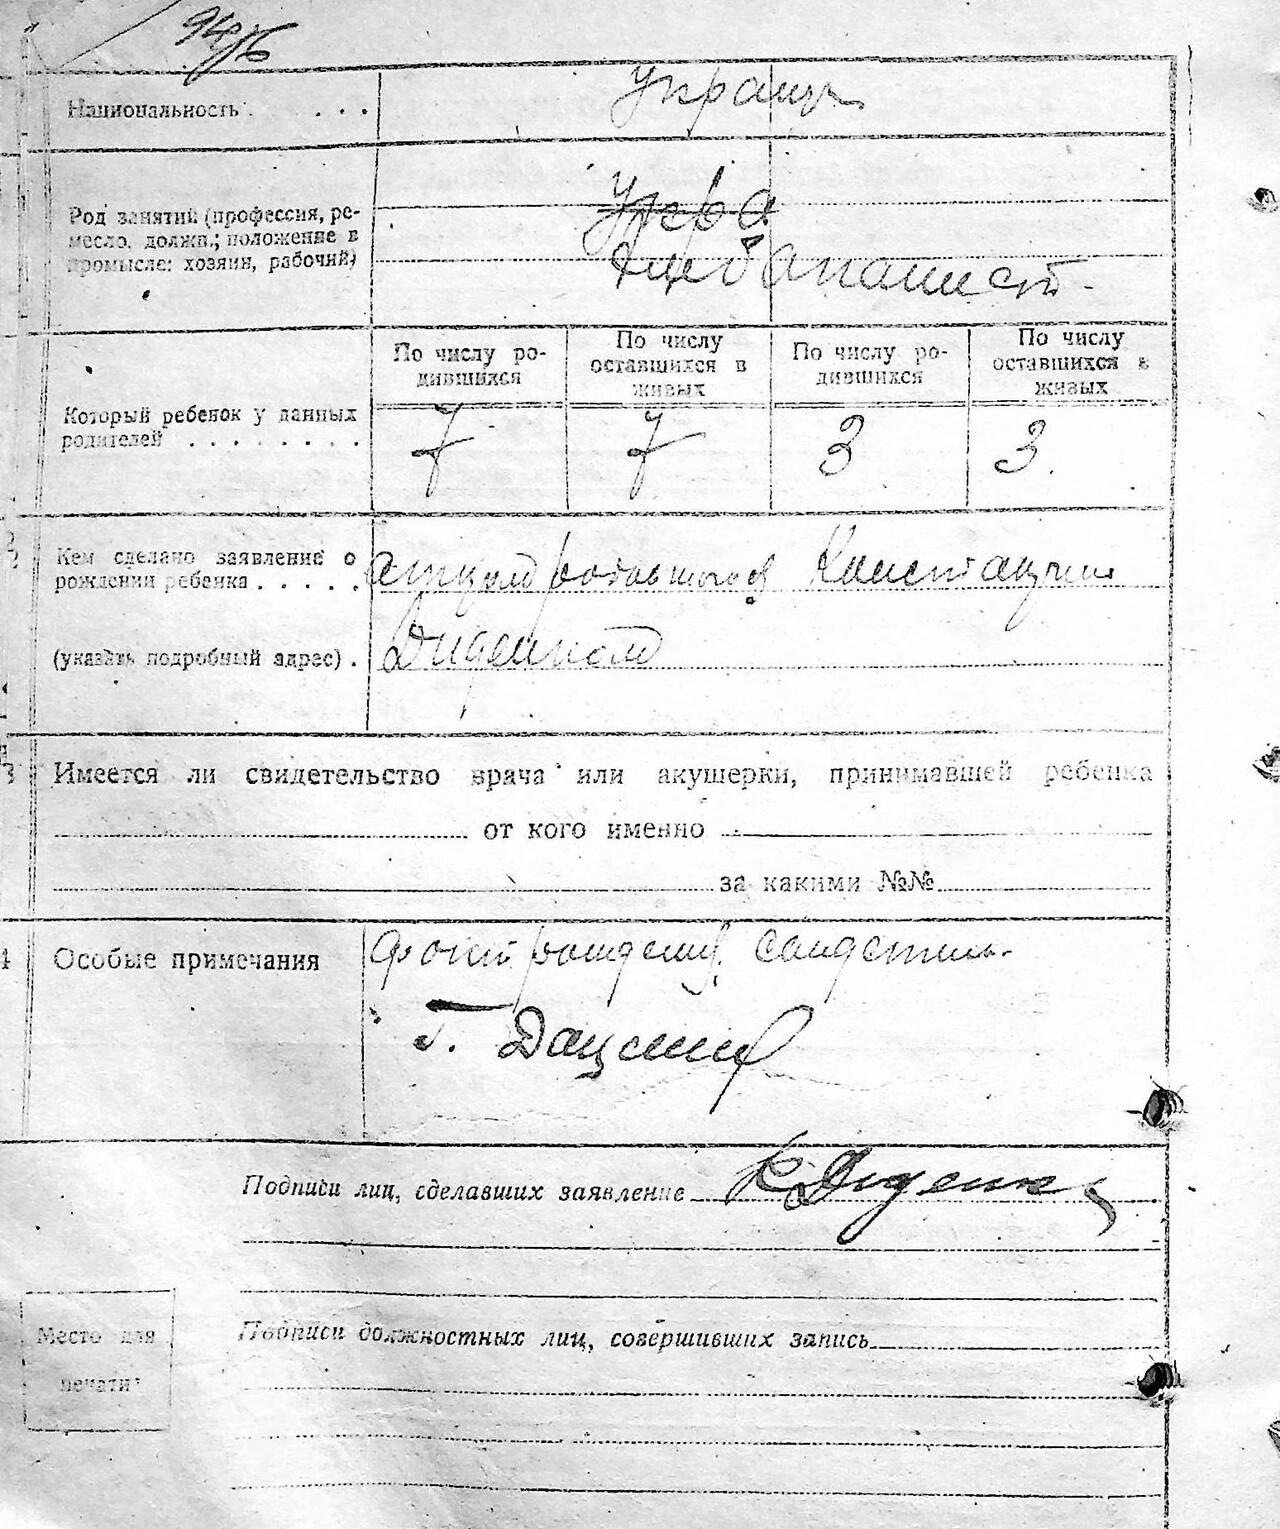 94/б
Национальность . . . .
Украинц
Род занятий (профессия, ре-
месло, должн.; положение в
промысле: хозяин, рабочий)
Укра
По числу ро-
дившихся
По числу
оставшихся в
живых
По числу ро-
дившихся
По числу
оставшихся в
живых
Который ребенок у данных
родителей . . . . . . . .
7 7 3 3.
Кем сделано заявление о
рождении ребенка . . . . .
Константин
(указать подробный адрес) .
Диденком
3 Имеется ли свидетельство врача или акушерки, принимавшей ребенка
от кого именно
за какими №№
4 Особые примечания
Факт рождения свидетель-
Г. Даценко
Подписи лиц, сделавших заявление К Диденко
Место для
печати
Подписи должностных лиц, совершивших запись